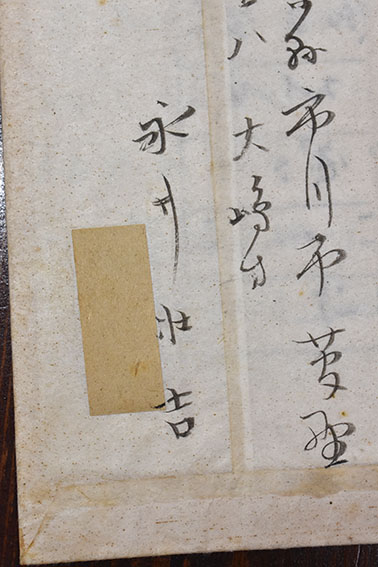 縣市川市菅野
八 大嶋方
永井壯吉